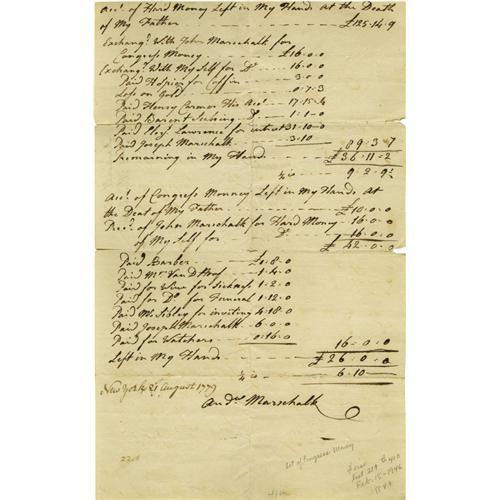 Acct. of Hard Money Left in My Hands At the Death
of My Father - - - - £125.14.9
Exchangd. With John Marschalk for
Congress Money - - - £16.0.0
Exchangd. With My Self for Do. - - - 16.0.0
Paid Hospier for Coffin - - - 3.0.0
Loss on Gold - - - 0.7.3
Paid Henry Carmer His Acct. - - 17.15.4
Paid Barent Do. - - 1.1.0
Paid Lawrence for intrest 31.10.0
Paid Joseph Marschalk - - 3.10
89.3.7
Remaining in My Hands - - - £36.11.2
¼ is - - 9.2.9½
Acct. of Congress Monney Left in My Hands At
the Deat of My Father - - - £10.0.0
Recd. of John Marschalk for Hard Money - 16.0.0
of My Self for Do. - - 16.0.0
£42.0.0
Paid Barber - - - £1.8.0
Paid Mr. Van D - - 1.4.0
Paid for Wine for Sickness 1.2.0
Paid for Do. for Funeral 1.12.0
Paid Mr. Sibley for inviting 4.18.0
Paid Joseph Marschalk - 6.0.0
Paid for Watchers - - 0.16.0
16.0.0
Left in My Hands - - - £26.0.0
¼ is - - 6.10
New York 21 August 1779
Andw. Marschalk
Act of Congress Money
Feb. 15 - 1946